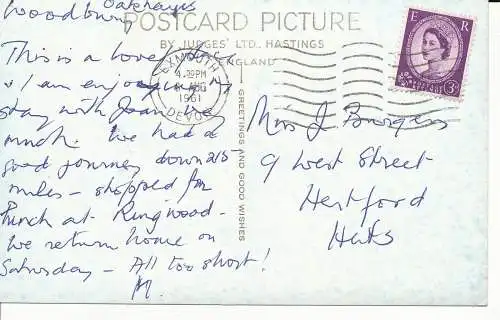 Oakhayes
Woodbury
POSTCARD PICTURE
BY JUDGES' LTD. HASTINGS
ENGLAND
This is a lovely
& I am enjoying my
stay with Joan very
much. We had a
good journey down 215
miles - stopped for
lunch at Ringwood.
We return home on
Saturday - All too short!
M.
GREETINGS AND GOOD WISHES
EXMOUTH
4. PM
AUG
1961
DEVON
E R
3D
Miss J Burgess
9 West Street
Hertford
Herts